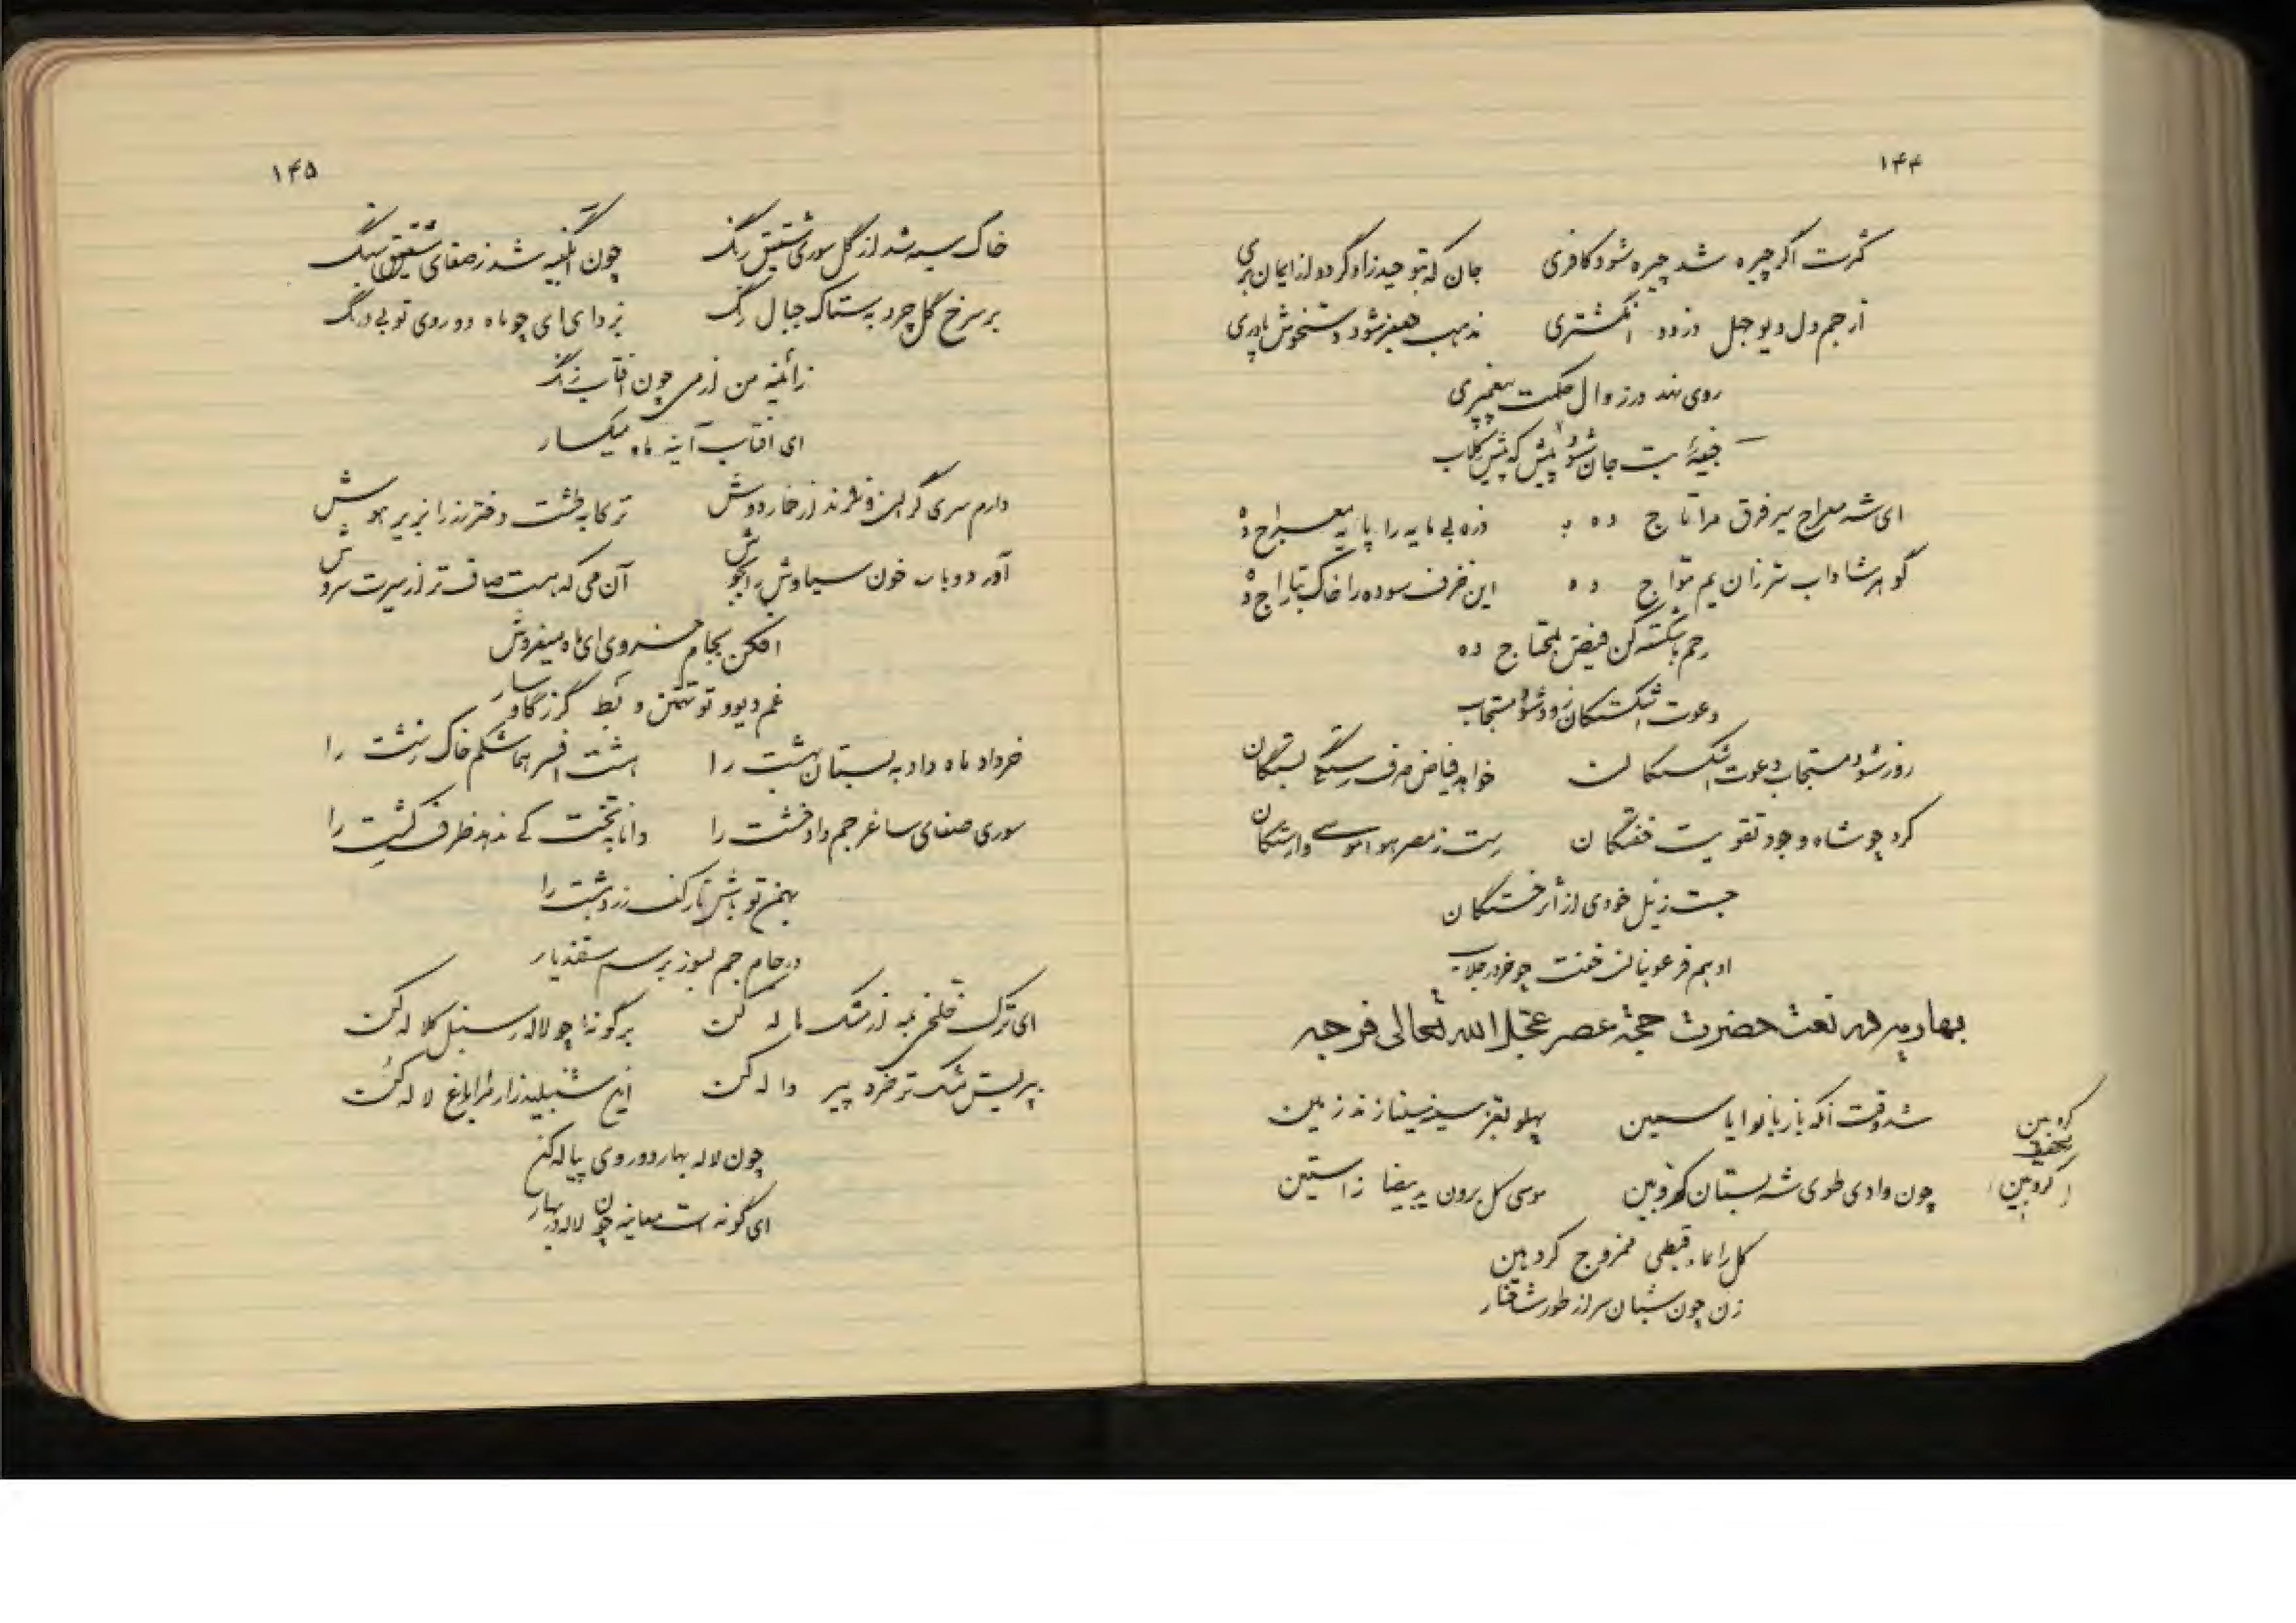 ۱۴۴
کثرت اگر چیره شد چیره شود کافری جان که بتوحید زاد گردد از ایمان بری
از جم دل دیو جهل دزدد انگشتری مذهب هیفز شود دستخوش پادری
روی نهد در زوال حکمت پیغمبری
جیفهٔ بت جان شود پیش که پیش کلاب
ای شه معراج سیر فرق مرا تاج ده ذره بی مایه را پایه معراج ده
گوهر شاداب تر زان یم موّاج ده این خزف سوده را خاک بتاراج ده
رحم باشکسته کن فیض بمحتاج ده
دعوت اشکستگان زود شود مستجاب
زود شود مستجاب دعوت اشکستگان خواهد فیاض صرف رستگی بستگان
کرد چو شاه وجود تقویت خفتگان رست ز مصر هوا موسی وارستگان
جست ز نیل خودی از اثر خستگان
او بیم فرعونیان خفت چو خر در خلاب
بهاریه در نعت حضرت حجة عصر عجل الله تعالی فرجه
شد وقت آنکه باز بانوا یاسمین پهلو بقبز سینه سینا زند زمین
چون وادی طوی شد بستان کروبین موسی گل برون ید بیضا ز آستین
کروبین
مخفف
(کروبین)
گل را بماء قبطی ممزوج کرد هین
زن چون شبان سر از طور شاخسار
۱۴۵
خاک سیه شد از گل سوری شقیق رنگ چون آبگینه شد ز صفای شقیق سنگ
بر سرخ گل چرد بستاک جبال رنگ بزدای ای چو ماه دو روی تو بی درنگ
ز آئینه من از می چون آفتاب زنگ
ای آفتاب آینه ماه میگسار
دارم سری گران و نژند از خمار دوش ترکا بهشت دختر رز را بزیر هوش
آور دوباره خون سیاوش را بجوش آن می که هست صاف تر از سیرت سروش
افکن بجام خسروی ای ماه میفروش
غم دیو و تو تهمتن و بط گرز گاوسار
خرداد ماه داد به بستان بهشت را هشت افسر هما شکم خاک زشت را
سوری صفای ساغر جم داد خشت را دانا بتخت کی ندهد ظرف کشت را
بهمن تو باش تارک زردهشت را
در جام جم بسوز بر اسفندیار
ای ترک خلخی بمه از مشک هاله کن بر گونهٔ چو لاله ز سنبل کلاله کن
پریش مشک تر خرد پیر واله کن این شنبلید زار مرا باغ لاله کن
چون لاله بهار دو روی پیاله کن
ای گونه ات معاینه چون لاله در بهار